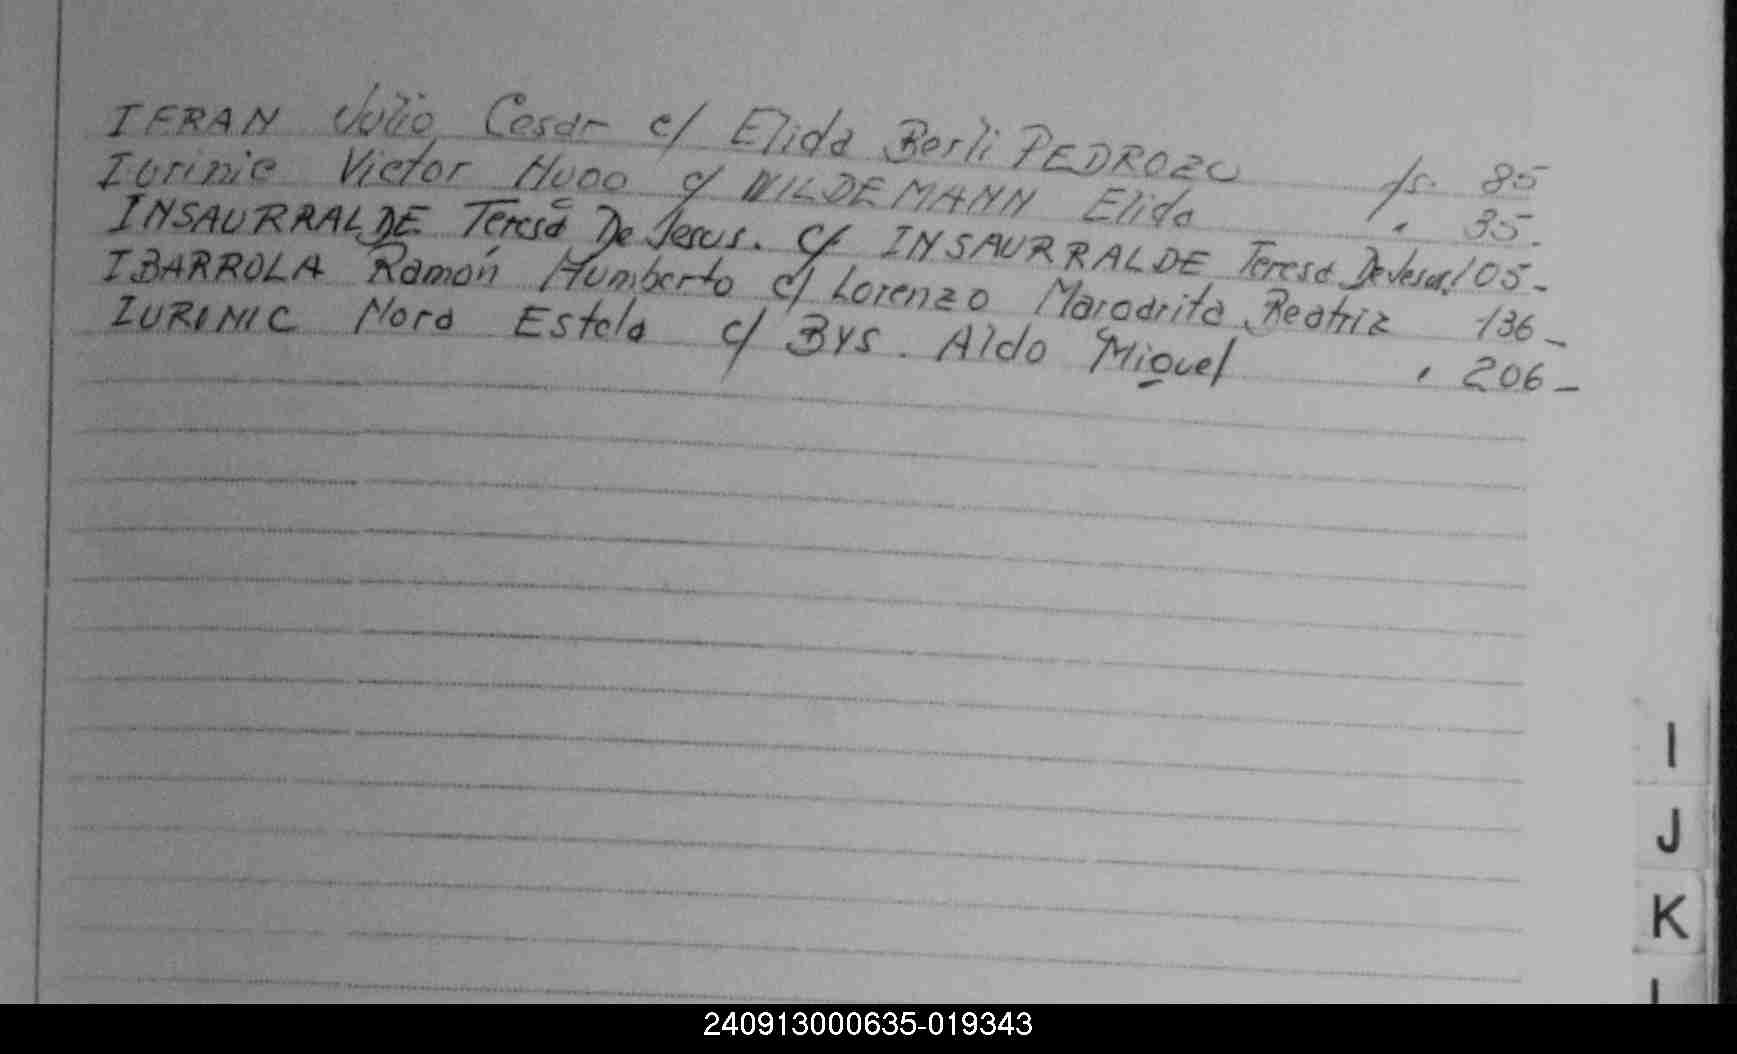 IFRAN Julio Cesar c/ Elida Berli PEDROZO fs. 85
Iurinic Victor Hugo c/ WILDEMANN Elida " 35.
INSAURRALDE Teresa De Jesus. c/ INSAURRALDE Teresa De Jesus. 105-
IBARROLA Ramón Humberto c/ Lorenzo Margarita Beatriz 136_
IURINIC Nora Estela c/ BYS. Aldo Miguel " 206_
I
J
K
L
240913000635-019343